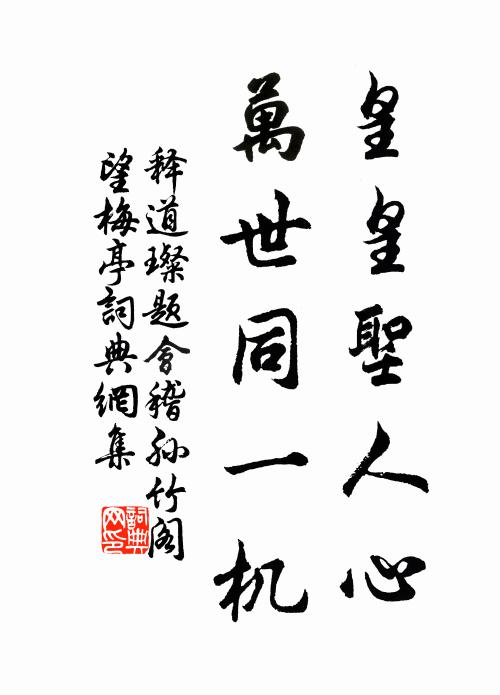 皇皇聖人心
萬世同一机
释道璨題會稽孙竹阁
望梅亭詞典網集
詞典
网印